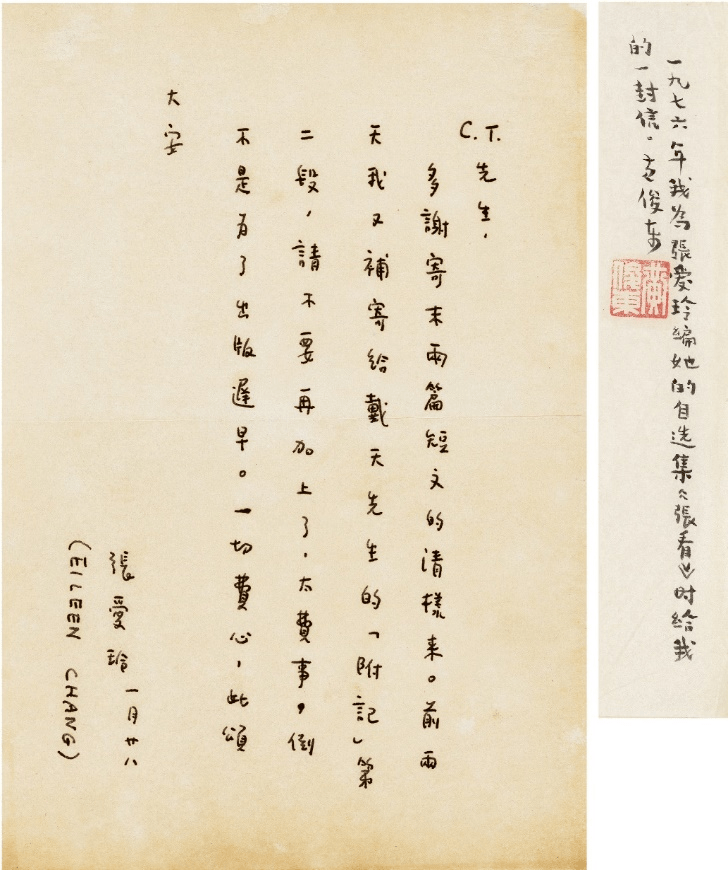 C.T.先生，
多謝寄末兩篇短文的清樣来。前兩
天我又補寄給戴天先生的「附記」第
二段，請不要再加上了，太費事。倒
不是為了出版遲早。一切費心，此頌
大安
張愛玲 一月廿八
(EILEEN CHANG)
一九七六年我為張愛玲編她的自选集《張看》时给我
的一封信。黄俊东
黄俊東